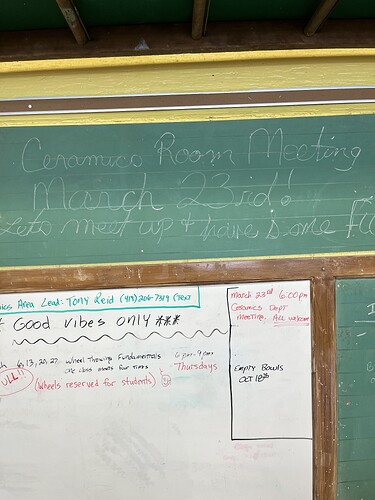 Ceramics Room Meeting
March 23rd!
Lets meet up & have some
Area Lead: Tony Reid
Good vibes only ***
6, 13, 20, 27 Wheel Throwing Fundamentals 6pm-9pm
one class meets four times Thursdays
(Wheels reserved for students)
March 23rd 6:00pm
Ceramics Dept
Meeting. All welcome
Empty Bowls
Oct 18th